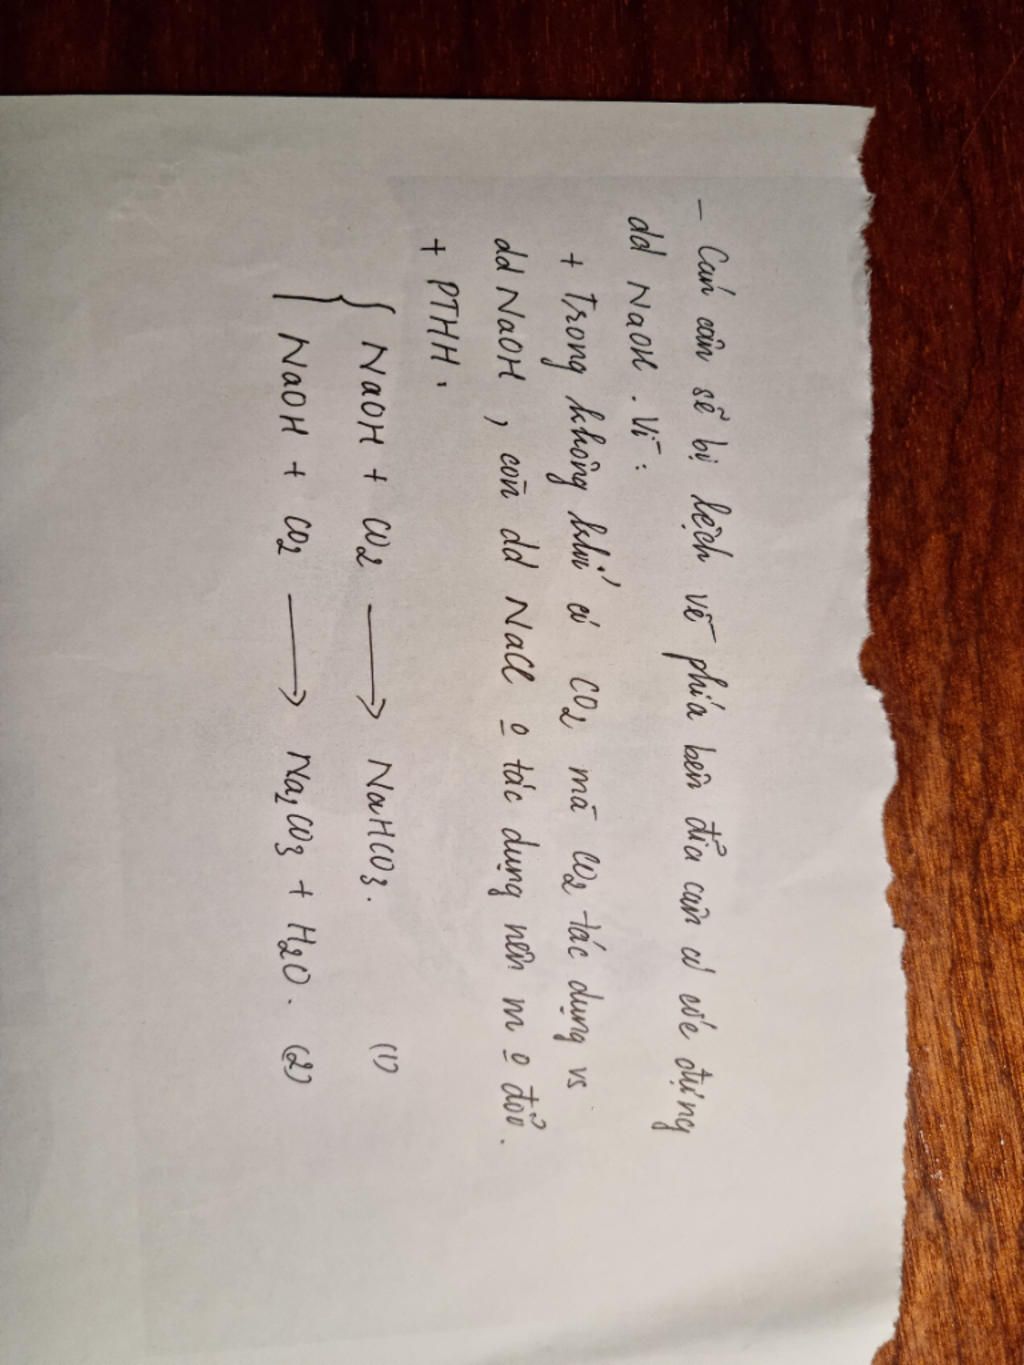 - Cán cân sẽ bị lệch về phía bên đĩa cân có cốc đựng
dd NaOH. Vì:
+ Trong không khí có CO2 mà CO2 tác dụng vs
dd NaOH, còn dd NaCl o tác dụng nên m o đổi.
+ PTHH:
NaOH + CO2 → NaHCO3. (1)
NaOH + CO2 → Na2CO3 + H2O. (2)